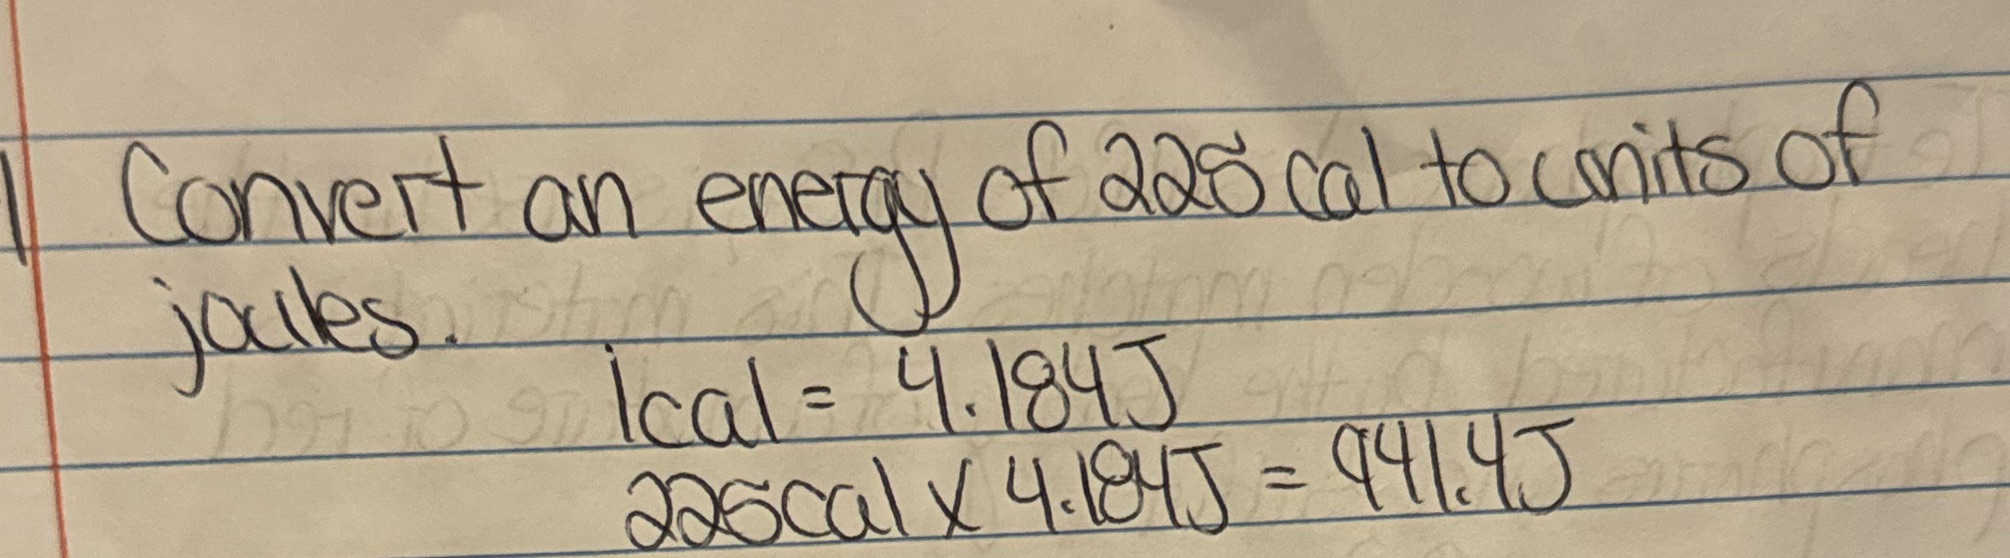 1 Convert an energy of 225 cal to units of
joules.
1cal = 4.184J
225cal x 4.184J = 941.4J